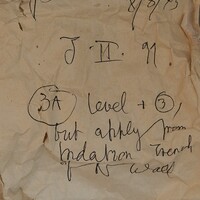 8/8/73
J. II. 91
3A level + 3,
but apply from
fndation trench
of N wall